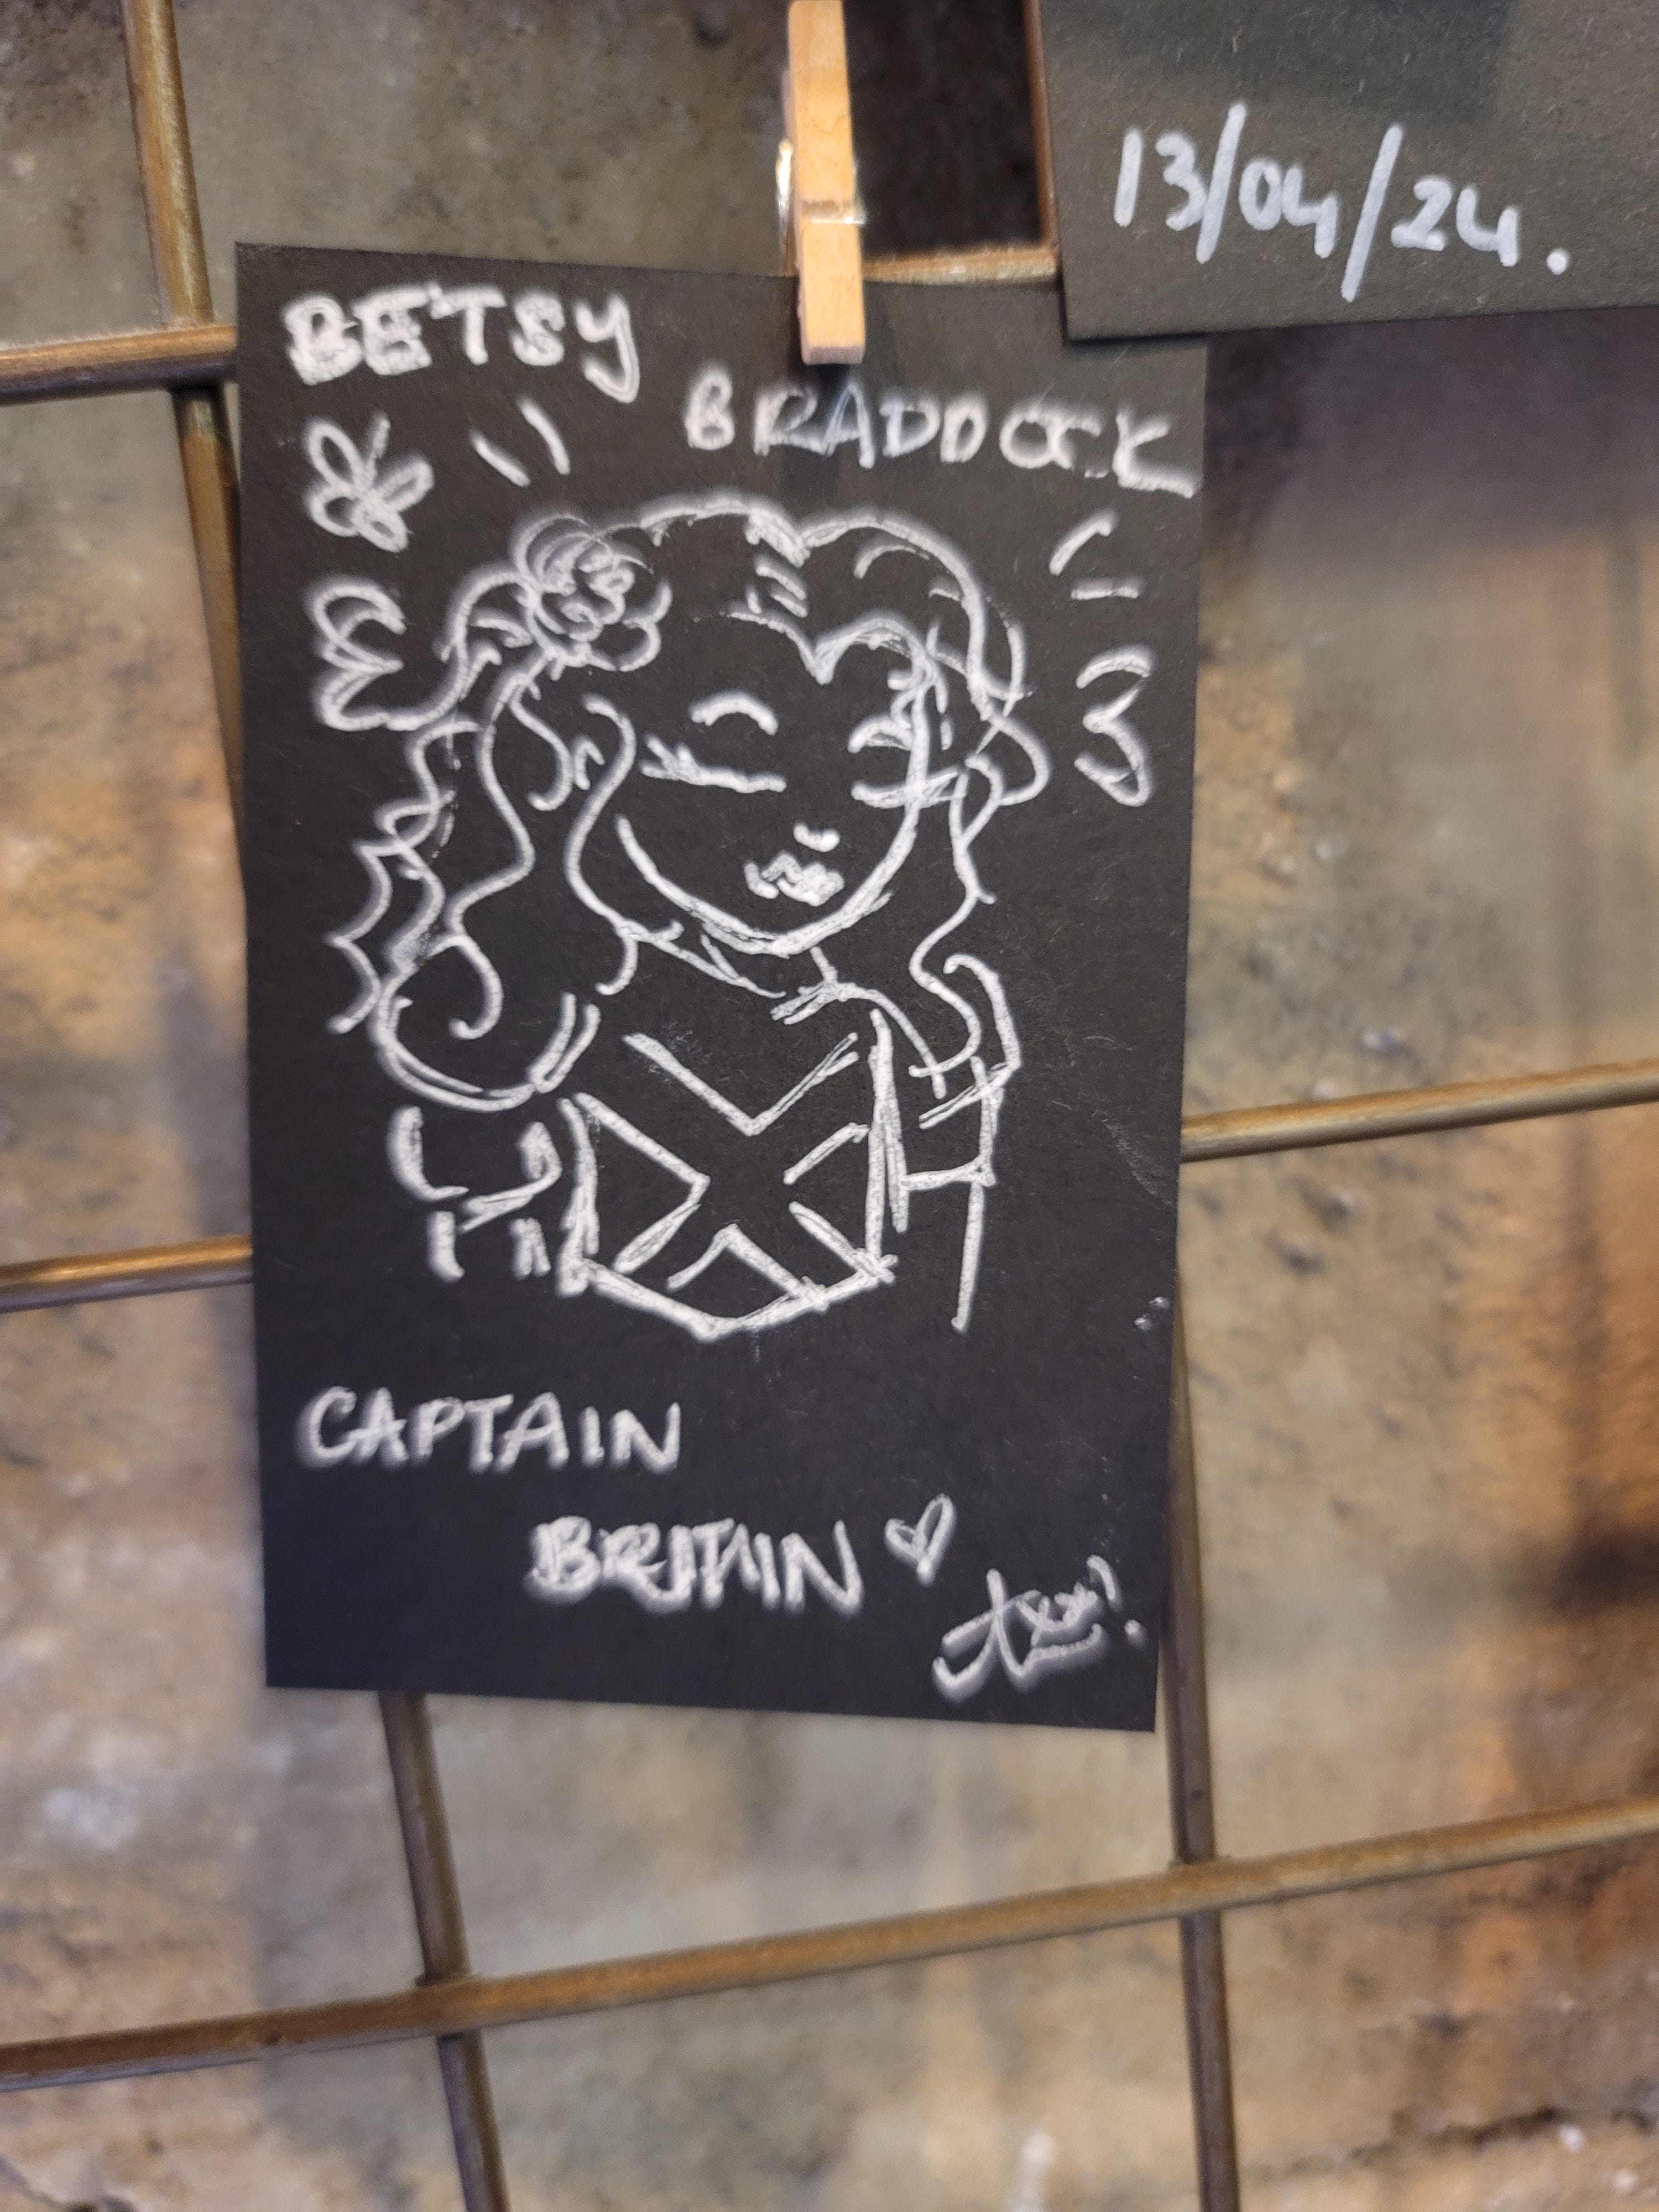 13/04/24.
BETSY
BRADDOCK
CAPTAIN
BRITAIN ♡